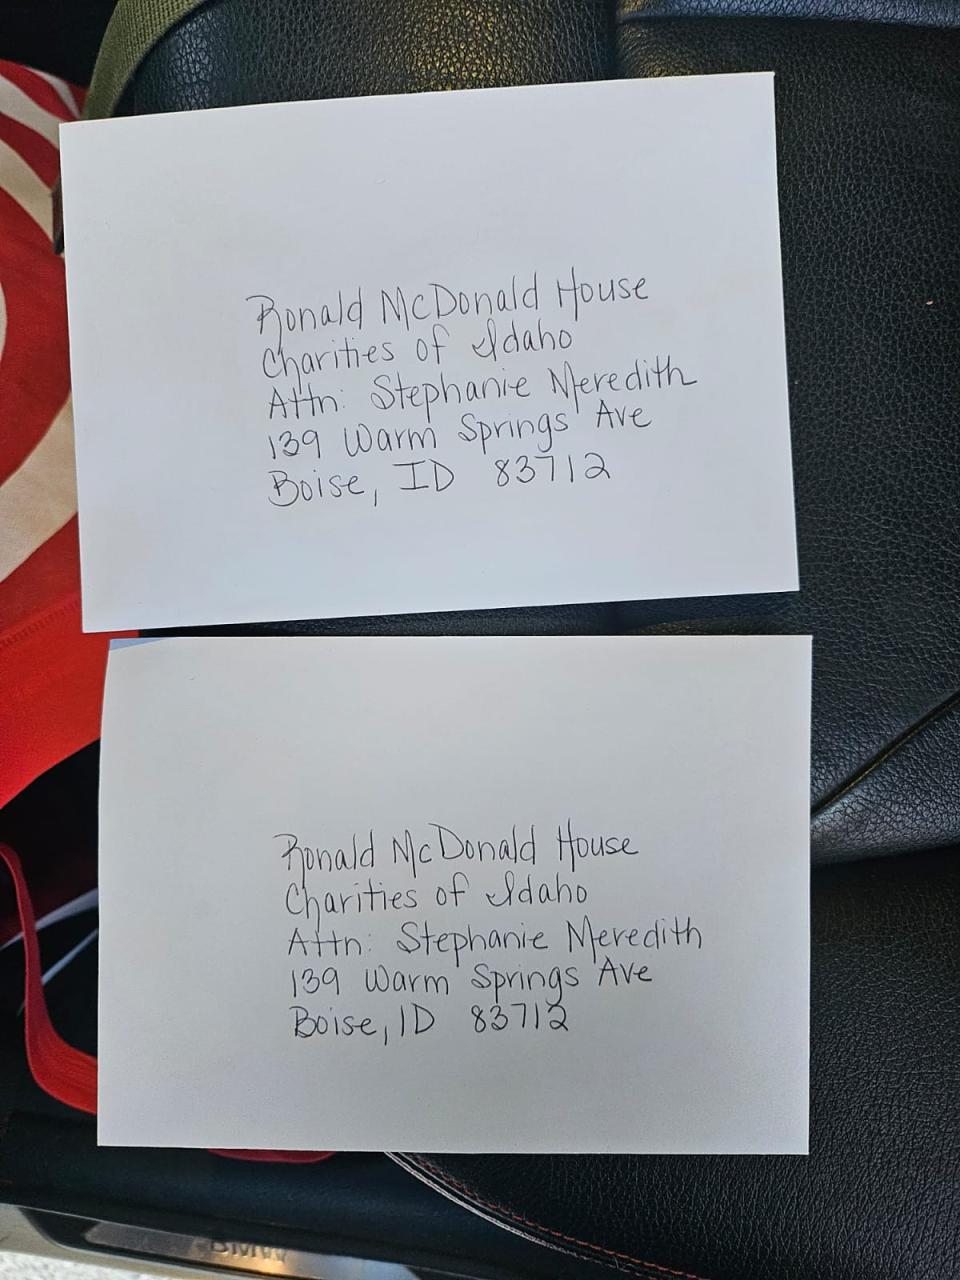 Ronald McDonald House
Charities of Idaho
Attn: Stephanie Meredith
139 Warm Springs Ave
Boise, ID 83712
Ronald McDonald House
Charities of Idaho
Attn: Stephanie Meredith
139 Warm Springs Ave
Boise, ID 83712
BMW